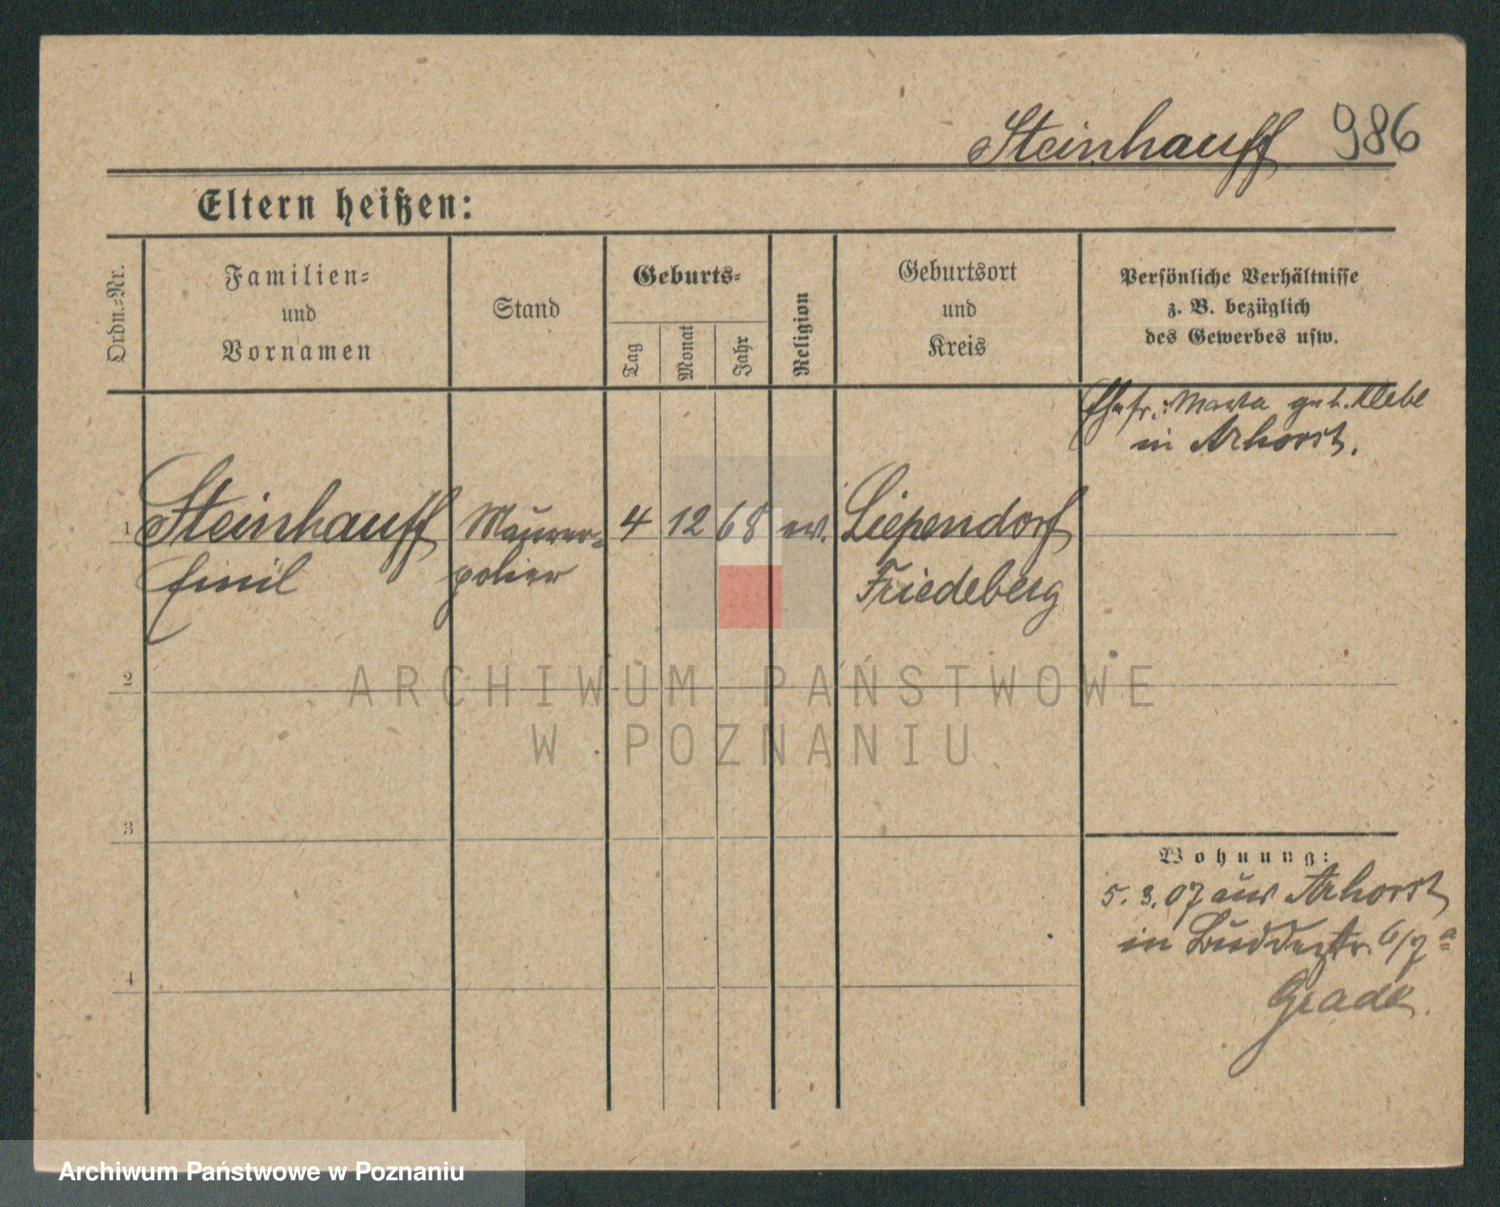 Steinhauff 986
Eltern heißen:
Ordn.=Nr.
Familien=
und
Vornamen
Stand
Geburts=
Tag
Monat
Jahr
Religion
Geburtsort
und
Kreis
Persönliche Verhältnisse
z. B. bezüglich
des Gewerbes usw.
Ehefr. Marta geb. Klebe
in Arhorst.
1 Steinhauff Maurer= 4 12 68 ev. Liependorf
Emil polier Friedeberg
2
3
4
Wohnung:
5. 3. 07 aus Arhorst
in Buddestr. 6/7a
Grade.
ARCHIWUM PAŃSTWOWE
W POZNANIU
Archiwum Państwowe w Poznaniu